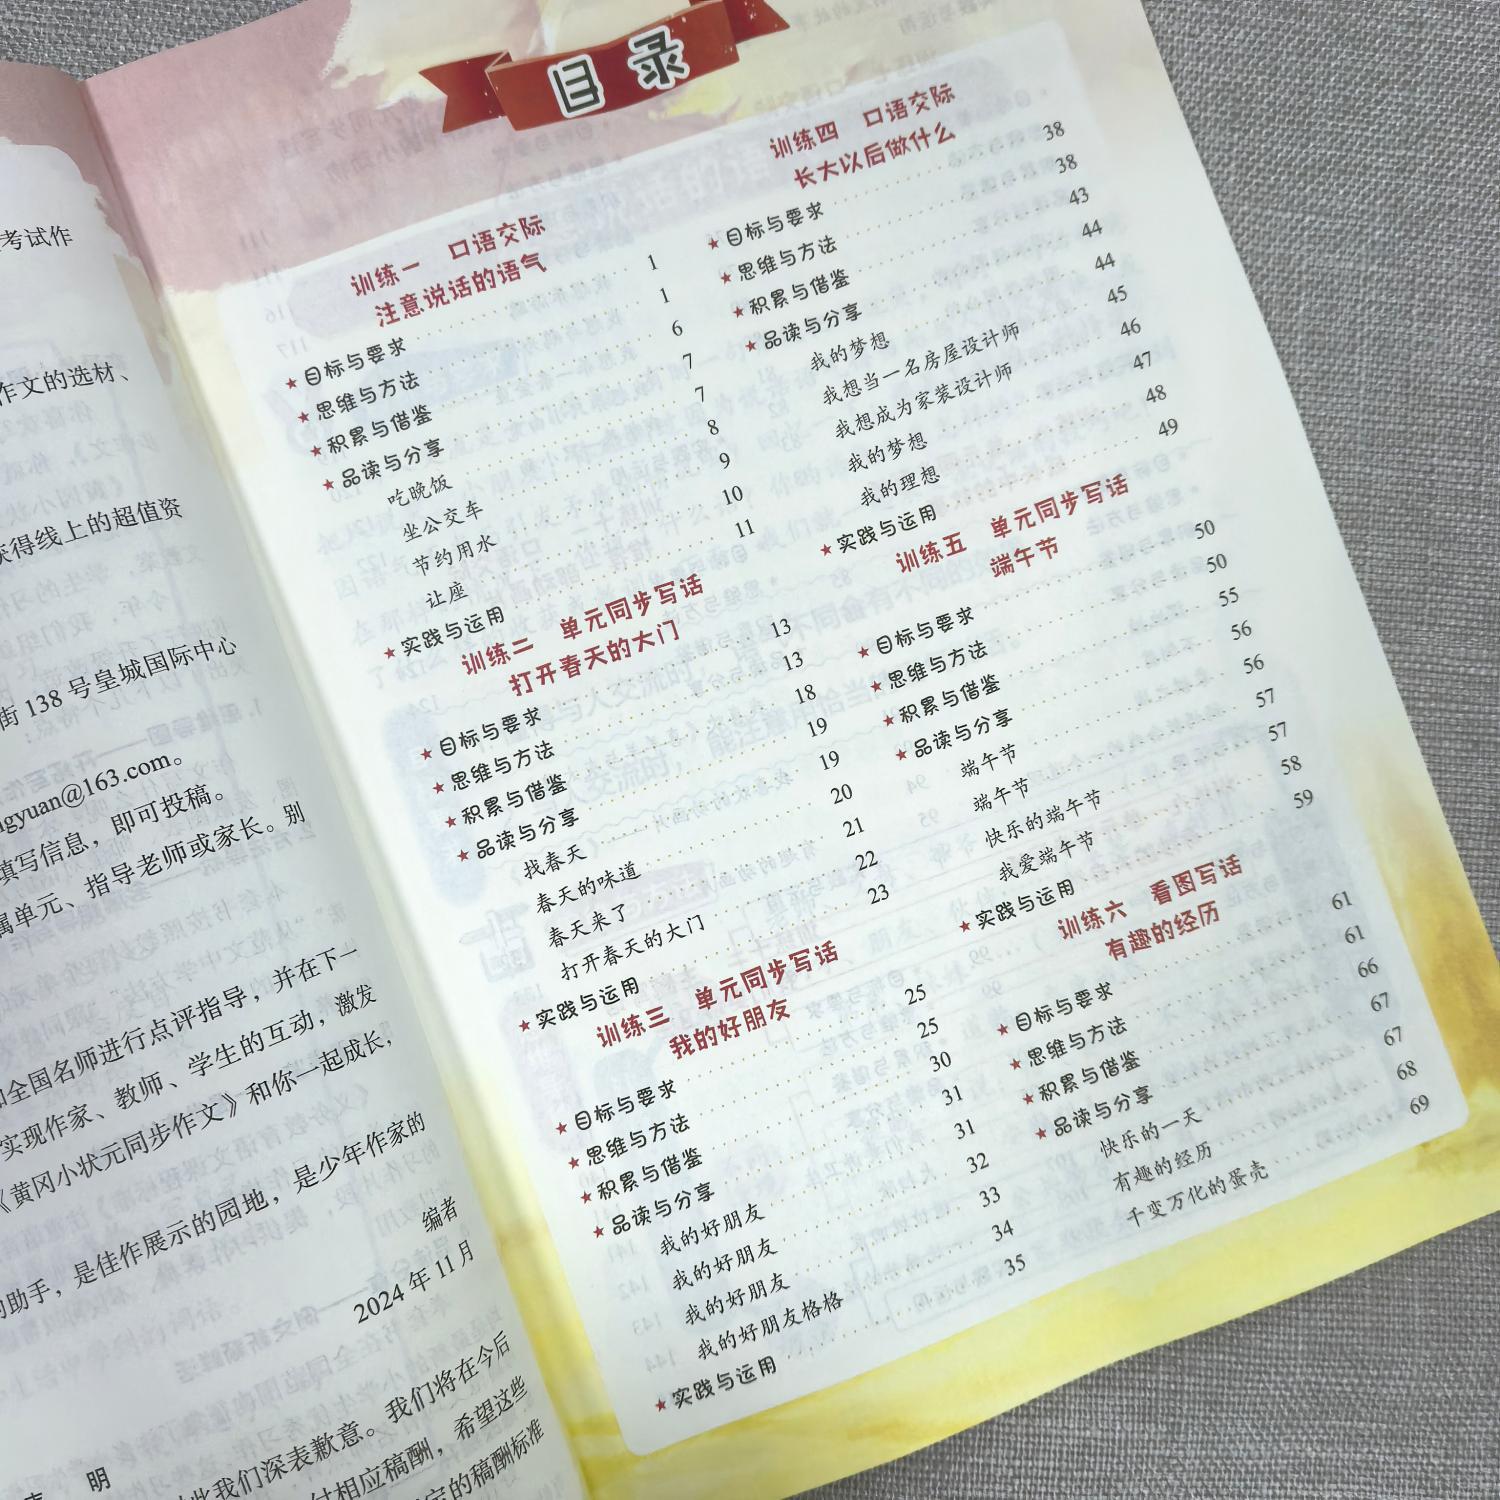 考试作
作文的选材、
获得线上的超值资
街 138 号皇城国际中心
gyuan@163.com。
填写信息，即可投稿。
属单元、指导老师或家长。别
和全国名师进行点评指导，并在下一
实现作家、教师、学生的互动，激发
《黄冈小状元同步作文》和你一起成长，
的助手，是佳作展示的园地，是少年作家的
编者
2024 年 11 月
我们深表歉意。我们将在今后
付相应稿酬，希望这些
定的稿酬标准
明
目录
训练一 口语交际
注意说话的语气
★目标与要求 1
★思维与方法 1
★积累与借鉴 6
★品读与分享 7
吃晚饭 7
坐公交车 8
节约用水 9
让座 10
★实践与运用 11
训练二 单元同步写话
打开春天的大门
★目标与要求 13
★思维与方法 13
★积累与借鉴 18
★品读与分享 19
找春天 19
春天的味道 20
春天来了 21
打开春天的大门 22
★实践与运用 23
训练三 单元同步写话
我的好朋友
★目标与要求 25
★思维与方法 25
★积累与借鉴 30
★品读与分享 31
我的好朋友 31
我的好朋友 32
我的好朋友 33
我的好朋友格格 34
★实践与运用 35
训练四 口语交际
长大以后做什么
★目标与要求 38
★思维与方法 38
★积累与借鉴 43
★品读与分享 44
我的梦想 44
我想当一名房屋设计师 45
我想成为家装设计师 46
我的梦想 47
我的理想 48
★实践与运用 49
训练五 单元同步写话
端午节
★目标与要求 50
★思维与方法 50
★积累与借鉴 55
★品读与分享 56
端午节 56
端午节 57
快乐的端午节 57
我爱端午节 58
★实践与运用 59
训练六 看图写话
有趣的经历
★目标与要求 61
★思维与方法 61
★积累与借鉴 66
★品读与分享 67
快乐的一天 67
有趣的经历 68
千变万化的蛋壳 69